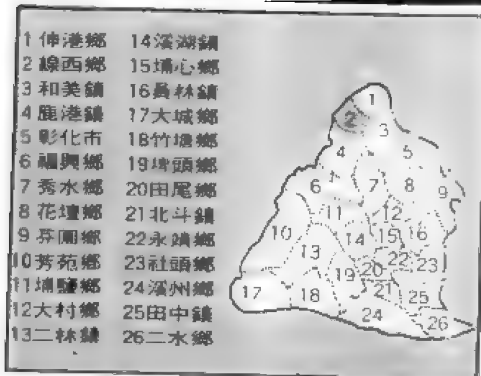 1伸港鄉
2線西鄉
3和美鎮
4鹿港鎮
5彰化市
6福興鄉
7秀水鄉
8花壇鄉
9芬園鄉
10芳苑鄉
11埔鹽鄉
12大村鄉
13二林鎮
14溪湖鎮
15埔心鄉
16員林鎮
17大城鄉
18竹塘鄉
19埤頭鄉
20田尾鄉
21北斗鎮
22永靖鄉
23社頭鄉
24溪州鄉
25田中鎮
26二水鄉
1
2 3
4 5
6 7 8 9
11 12
10 14 15 16
13 22 23
19 20
17 18 21 25
24 26